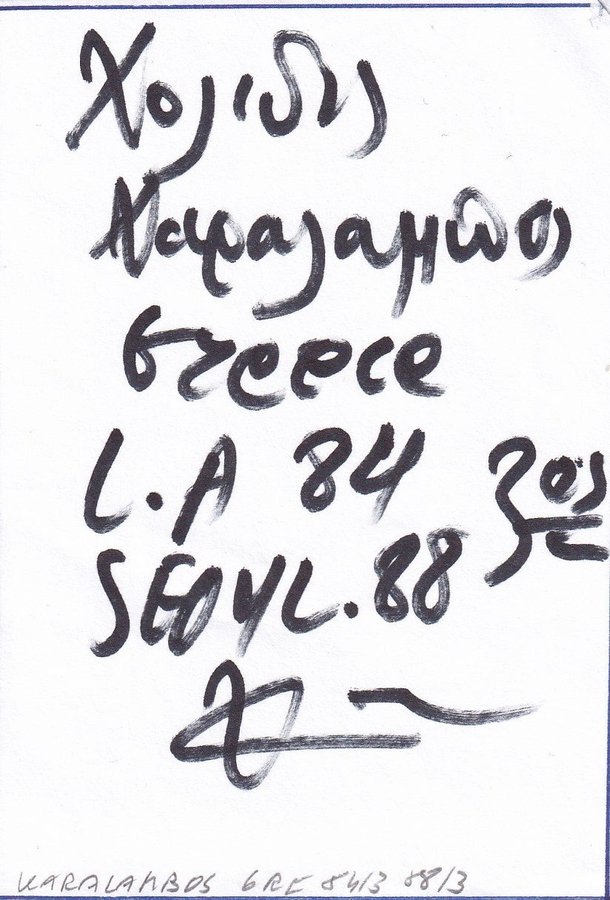 Χολιδης
Χαραλαμπος
Greece
L.A 84 3ος
SEOYL.88
KARALAMBOS GRE 84/3 88/3